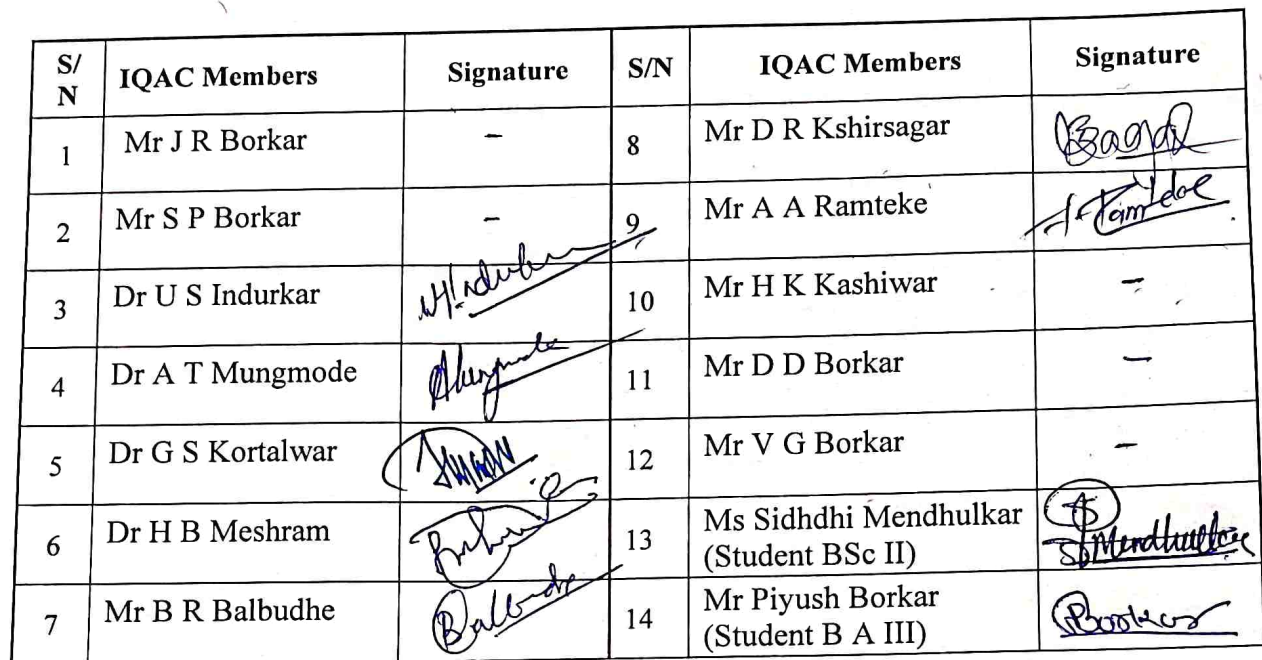 S/N IQAC Members Signature S/N IQAC Members Signature
1 Mr J R Borkar - 8 Mr D R Kshirsagar
2 Mr S P Borkar - 9 Mr A A Ramteke
3 Dr U S Indurkar 10 Mr H K Kashiwar -
4 Dr A T Mungmode 11 Mr D D Borkar -
5 Dr G S Kortalwar 12 Mr V G Borkar -
6 Dr H B Meshram 13 Ms Sidhdhi Mendhulkar
(Student BSc II)
7 Mr B R Balbudhe Balbudhe 14 Mr Piyush Borkar PBorkar
(Student B A III)